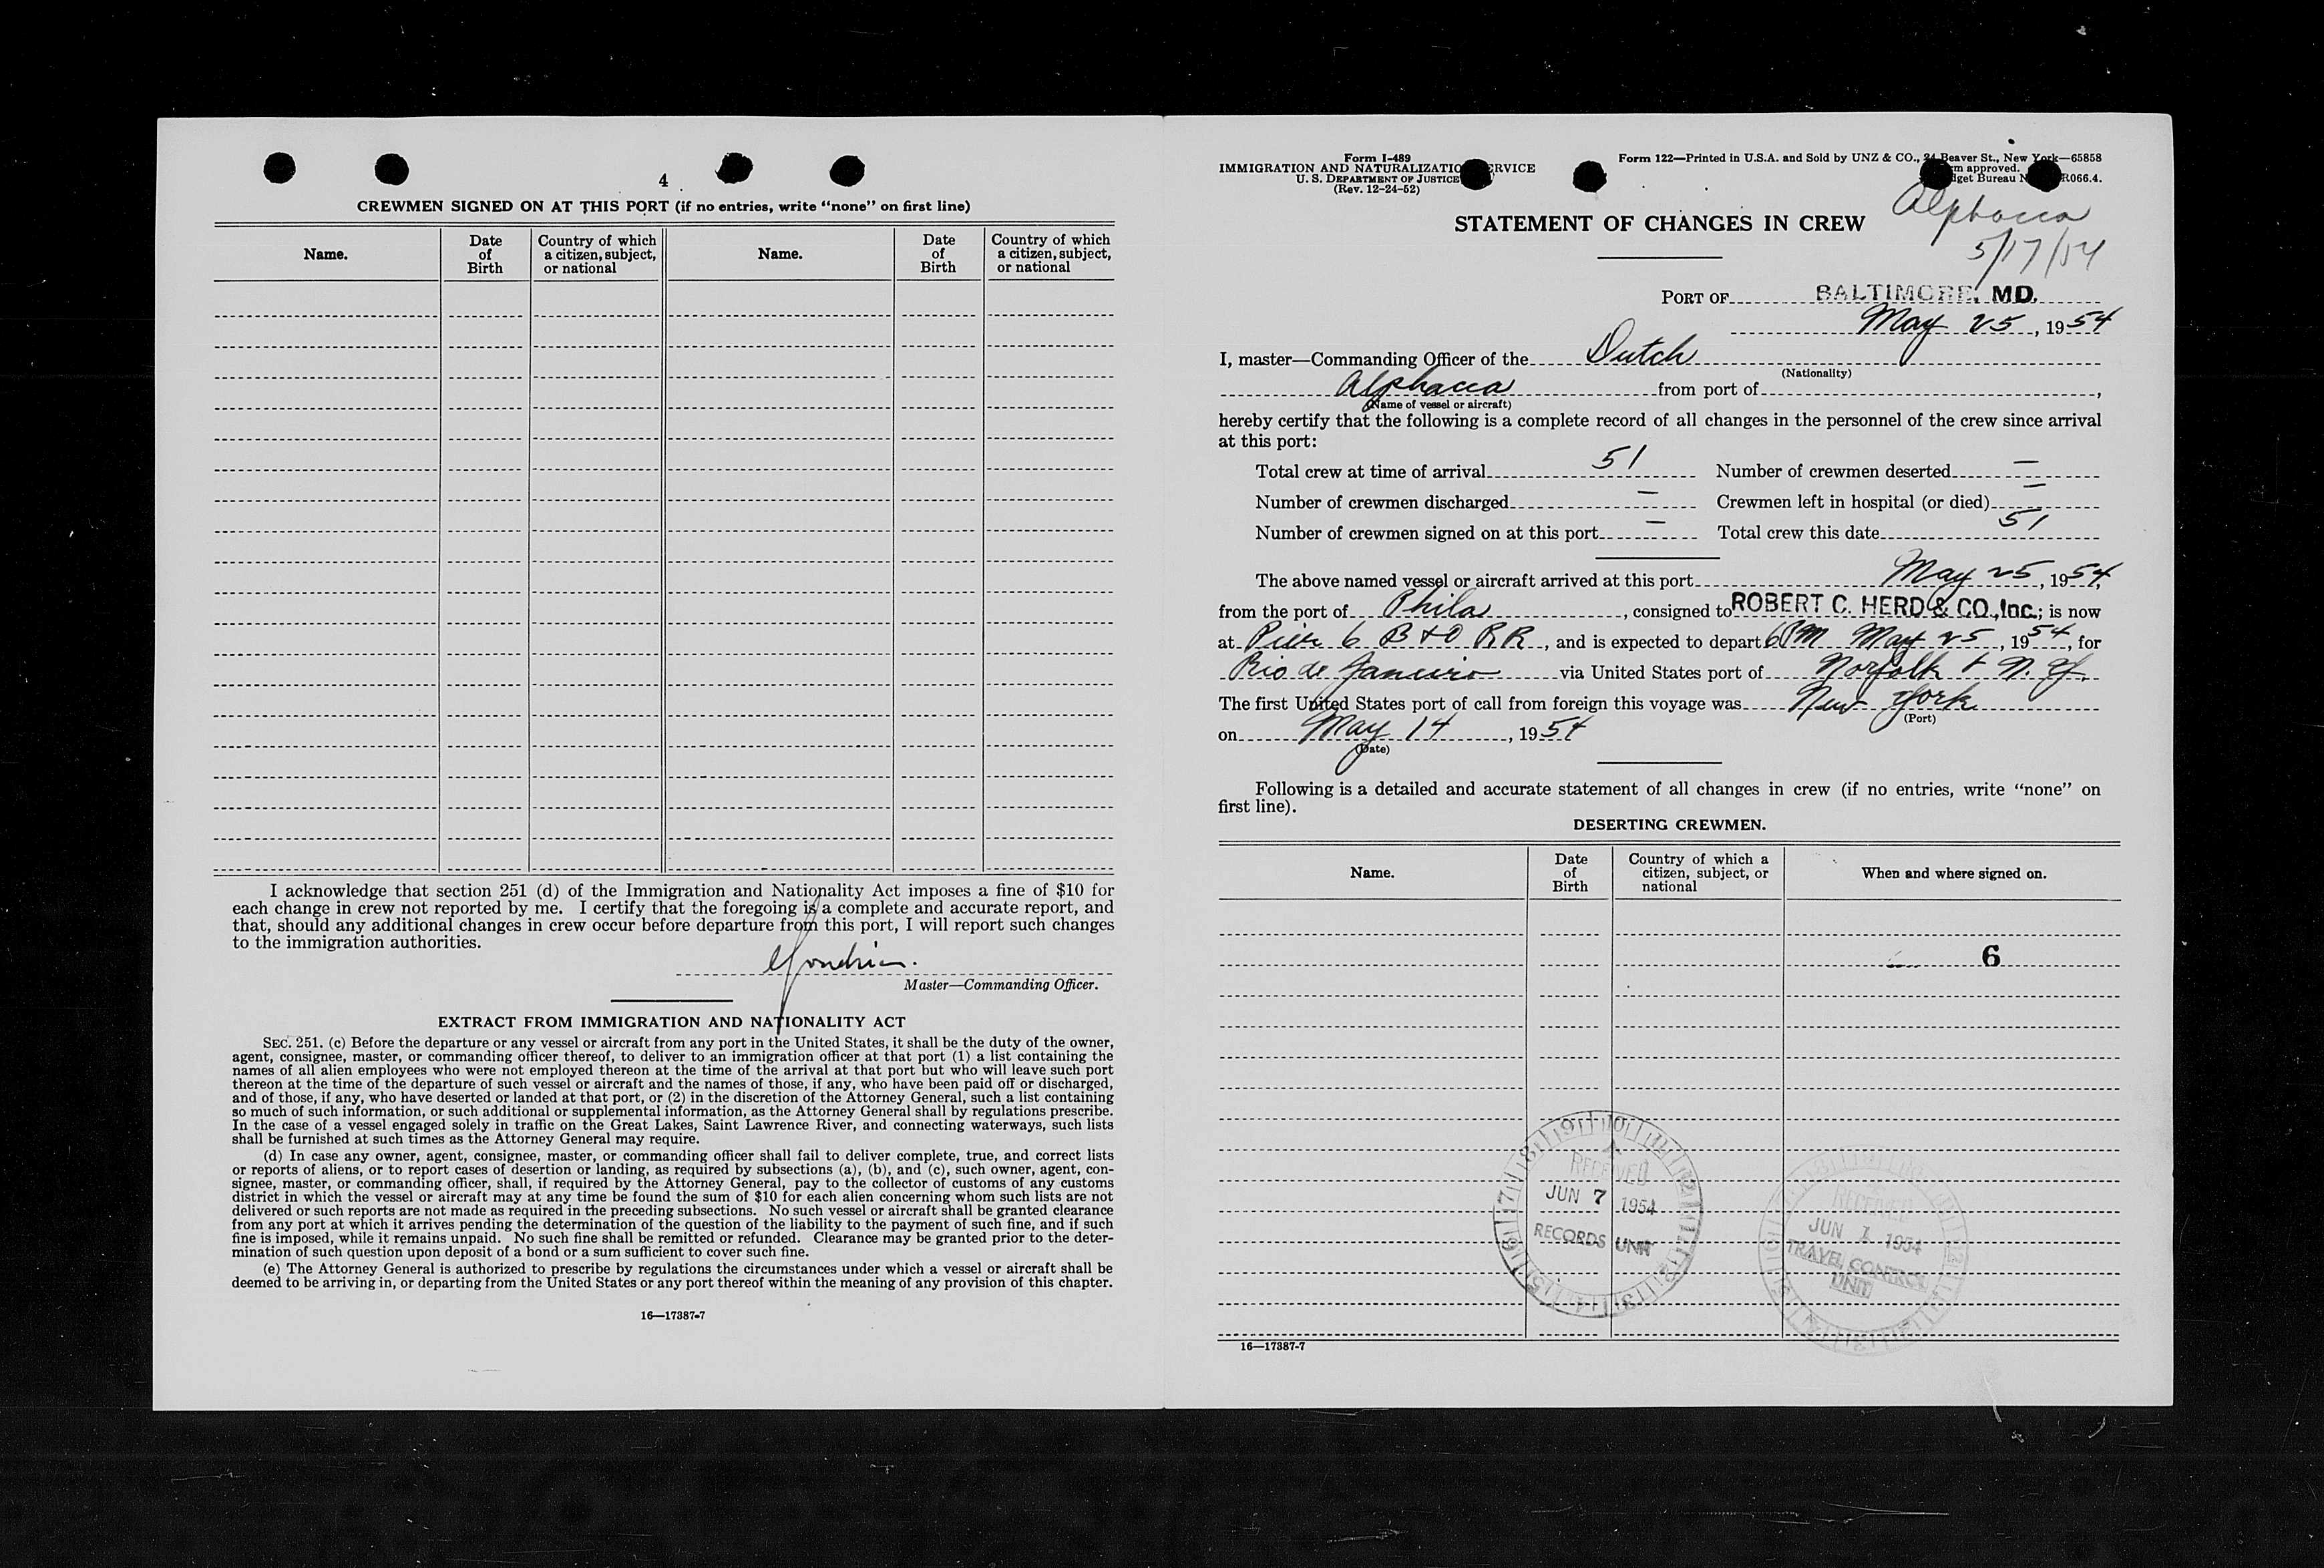 4
CREWMEN SIGNED ON AT THIS PORT (if no entries, write “none” on first line)
Name.
Date of Birth
Country of which a citizen, subject, or national
Name.
Date of Birth
Country of which a citizen, subject, or national
I acknowledge that section 251 (d) of the Immigration and Nationality Act imposes a fine of $10 for
each change in crew not reported by me. I certify that the foregoing is a complete and accurate report, and
that, should any additional changes in crew occur before departure from this port, I will report such changes
to the immigration authorities.
Master—Commanding Officer.
EXTRACT FROM IMMIGRATION AND NATIONALITY ACT
SEC. 251. (c) Before the departure or any vessel or aircraft from any port in the United States, it shall be the duty of the owner,
agent, consignee, master, or commanding officer thereof, to deliver to an immigration officer at that port (1) a list containing the
names of all alien employees who were not employed thereon at the time of the arrival at that port but who will leave such port
thereon at the time of the departure of such vessel or aircraft and the names of those, if any, who have been paid off or discharged,
and of those, if any, who have deserted or landed at that port, or (2) in the discretion of the Attorney General, such a list containing
so much of such information, or such additional or supplemental information, as the Attorney General shall by regulations prescribe.
In the case of a vessel engaged solely in traffic on the Great Lakes, Saint Lawrence River, and connecting waterways, such lists
shall be furnished at such times as the Attorney General may require.
(d) In case any owner, agent, consignee, master, or commanding officer shall fail to deliver complete, true, and correct lists
or reports of aliens, or to report cases of desertion or landing, as required by subsections (a), (b), and (c), such owner, agent, con-
signee, master, or commanding officer, shall, if required by the Attorney General, pay to the collector of customs of any customs
district in which the vessel or aircraft may at any time be found the sum of $10 for each alien concerning whom such lists are not
delivered or such reports are not made as required in the preceding subsections. No such vessel or aircraft shall be granted clearance
from any port at which it arrives pending the determination of the question of the liability to the payment of such fine, and if such
fine is imposed, while it remains unpaid. No such fine shall be remitted or refunded. Clearance may be granted prior to the deter-
mination of such question upon deposit of a bond or a sum sufficient to cover such fine.
(e) The Attorney General is authorized to prescribe by regulations the circumstances under which a vessel or aircraft shall be
deemed to be arriving in, or departing from the United States or any port thereof within the meaning of any provision of this chapter.
16—17387-7
Form I-489
IMMIGRATION AND NATURALIZATIO ERVICE
U. S. DEPARTMENT OF JUSTICE
(Rev. 12-24-52)
Form 122—Printed in U.S.A. and Sold by UNZ & CO., 24 Beaver St., New York—65858
m approved.
get Bureau N R066.4.
Alphacca
5/17/54
STATEMENT OF CHANGES IN CREW
PORT OF BALTIMORE, MD.
May 25, 1954
I, master—Commanding Officer of the Dutch
(Nationality)
Alphacca from port of ,
(Name of vessel or aircraft)
hereby certify that the following is a complete record of all changes in the personnel of the crew since arrival
at this port:
Total crew at time of arrival 51 Number of crewmen deserted —
Number of crewmen discharged — Crewmen left in hospital (or died) —
Number of crewmen signed on at this port — Total crew this date 51
The above named vessel or aircraft arrived at this port May 25, 1954,
from the port of Phila, consigned to ROBERT C. HERD & CO., Inc.; is now
at Pier 6 B & O RR, and is expected to depart 6 PM May 25, 1954, for
Rio de Janeiro via United States port of Norfolk & N.Y.
The first United States port of call from foreign this voyage was New York
(Port)
on May 14, 1954
(Date)
Following is a detailed and accurate statement of all changes in crew (if no entries, write “none” on
first line).
DESERTING CREWMEN.
Name.
Date of Birth
Country of which a citizen, subject, or national
When and where signed on.
6
RECEIVED
JUN 7 1954
RECORDS UNIT
RECEIVED
JUN 1 1954
TRAVEL CONTROL
UNIT
16—17387-7